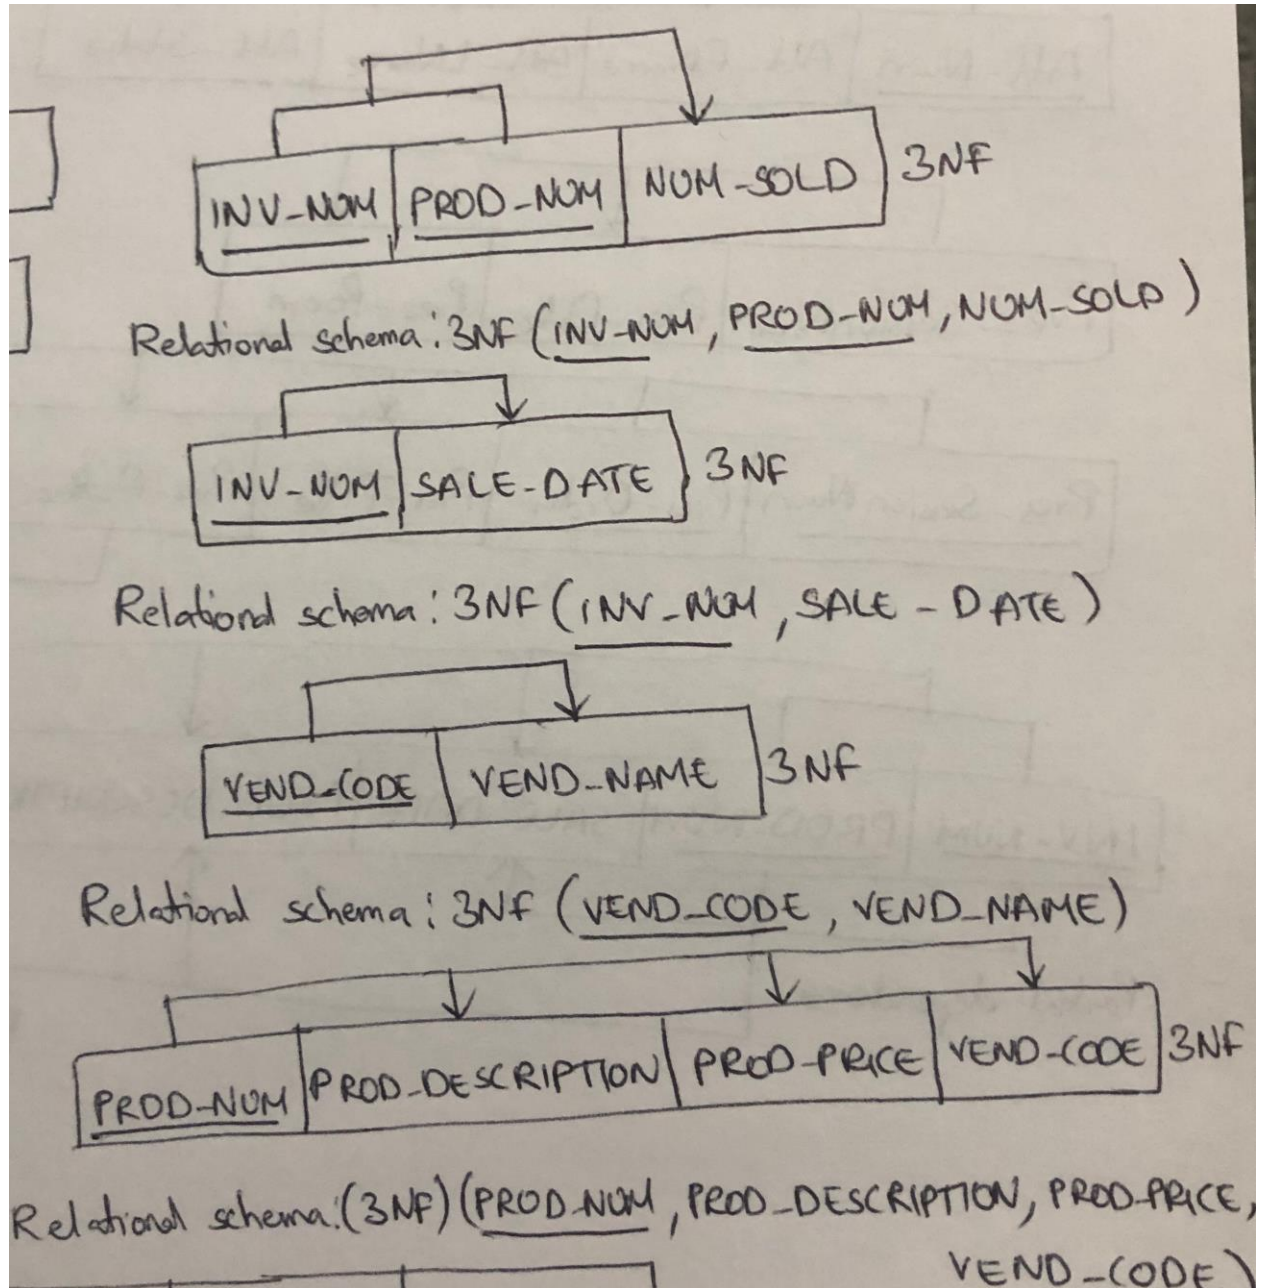 INV-NUM PROD-NUM NUM-SOLD 3NF
Relational schema: 3NF (INV-NUM, PROD-NUM, NUM-SOLD)
INV-NUM SALE-DATE 3NF
Relational schema: 3NF (INV-NUM, SALE-DATE)
VEND-CODE VEND-NAME 3NF
Relational schema: 3NF (VEND-CODE, VEND-NAME)
PROD-NUM PROD-DESCRIPTION PROD-PRICE VEND-CODE 3NF
Relational schema: (3NF) (PROD-NUM, PROD-DESCRIPTION, PROD-PRICE,
VEND-CODE)